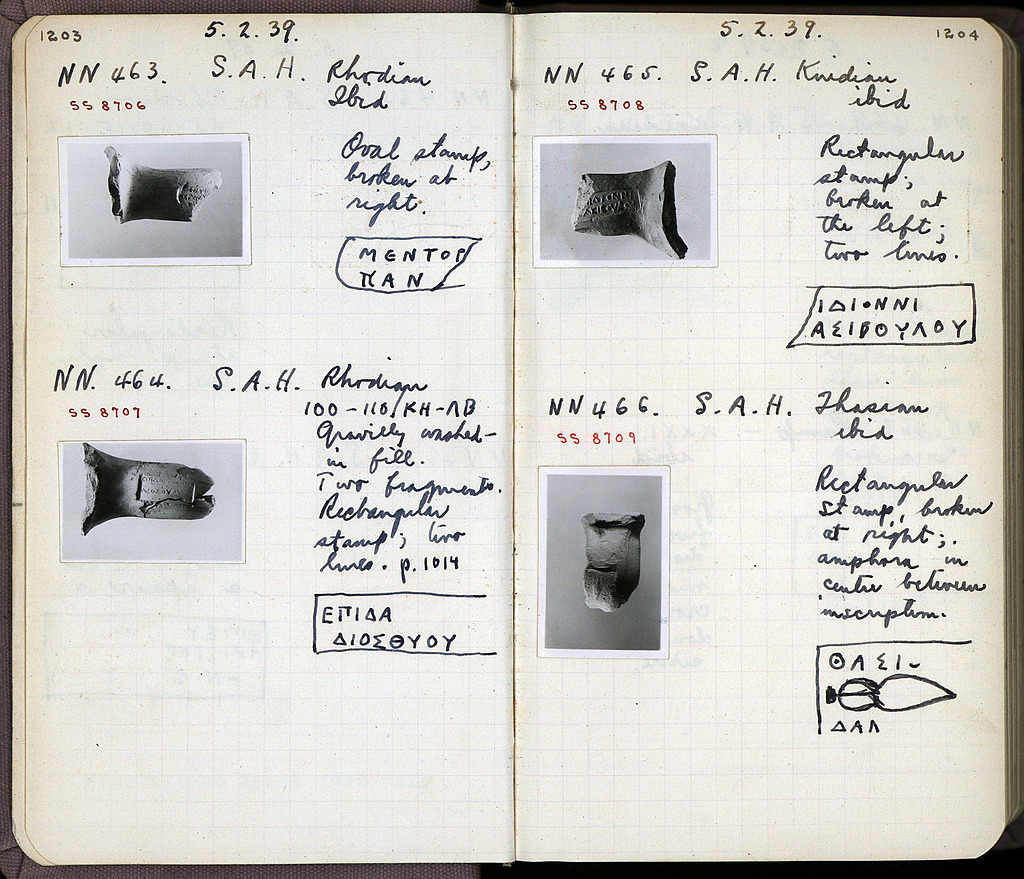 1203
5.2.39.
NN 463. S.A.H. Rhodian
SS 8706 Ibid
Oval stamp,
broken at
right.
ΜΕΝΤΟΡ
ΠΑΝ
NN. 464. S.A.H. Rhodian
SS 8707
100-110/ΚΗ-ΛΒ
Gravilly washed-
in fill.
Two fragments.
Rectangular
stamp; two
lines. p.1014
ΕΠΙΔΑ
ΔΙΟΣΘΥΟΥ
5.2.39.
1204
NN 465. S.A.H. Knidian
SS 8708 ibid
Rectangular
stamp;
broken at
the left;
two lines.
ΙΔΙΟΝΝΙ
ΑΣΙΒΟΥΛΟΥ
NN 466. S.A.H. Thasian
SS 8709 ibid
Rectangular
stamp, broken
at right;.
amphora in
centre between
inscription.
ΘΑΣΙ
ΔΑΛ